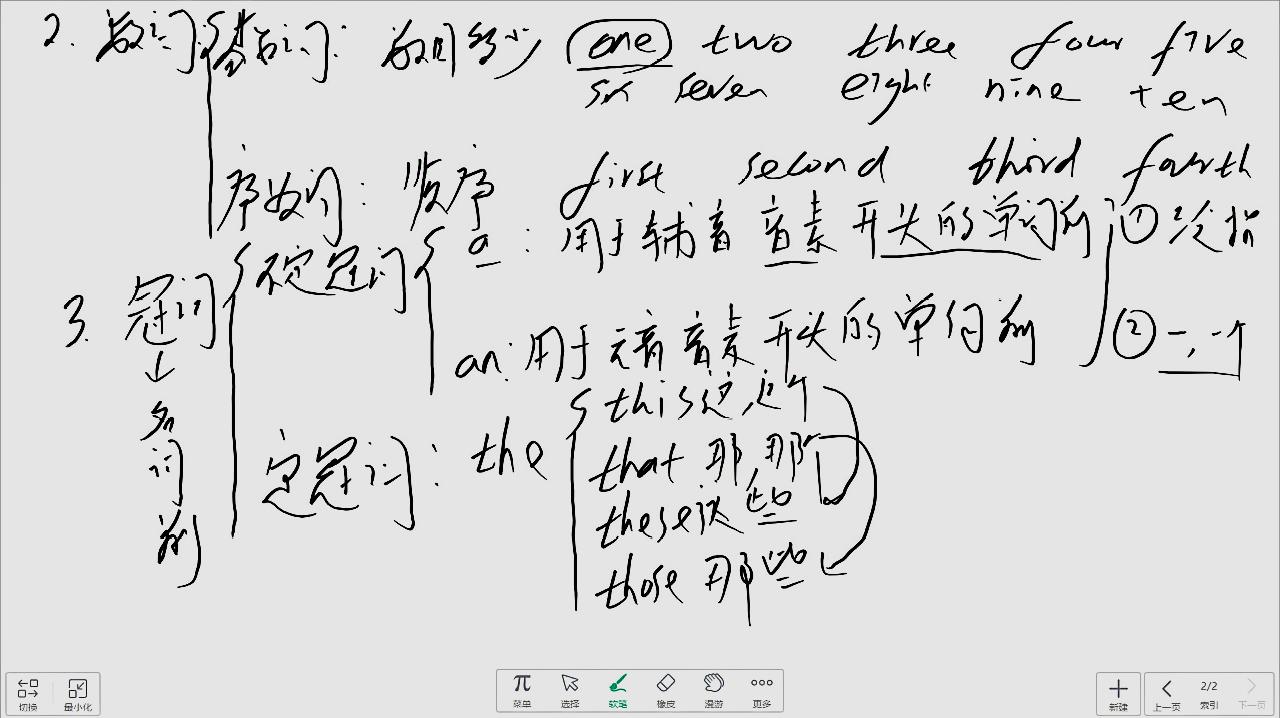 2. 数词 基数词: 数目多少 one two three four five
six seven eight nine ten
序数词: 顺序 first second third fourth
3. 冠词 不定冠词 a: 用于辅音音素开头的单词前 ① 泛指
an: 用于元音音素开头的单词前 ② 一, 一个
↓
名词前
定冠词: the
this 这, 这个
that 那, 那个
these 这些
those 那些
切换 最小化 菜单 选择 软笔 橡皮 漫游 更多 新建 上一页 2/2 索引 下一页